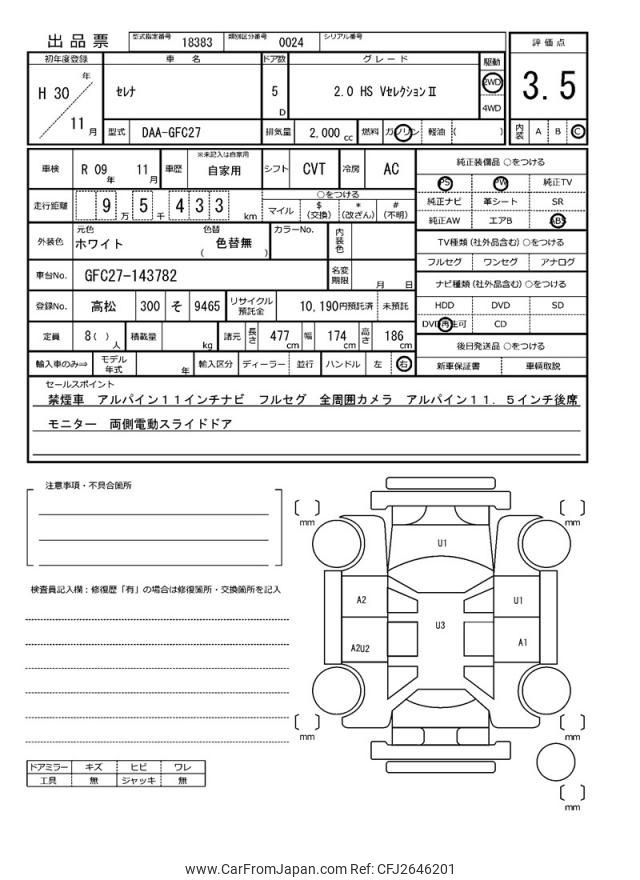 出品票 型式指定番号 18383 類別区分番号 0024 シリアル番号
評価点
3.5
内装 A B C
初年度登録 車名 ドア数 グレード 駆動
H 30 年 11 月 セレナ 5 D 2.0 HS VセレクションⅡ 2WD 4WD
型式 DAA-GFC27 排気量 2,000 cc 燃料 ガソリン 軽油 ( )
車検 R 09 年 11 月 車歴 ※未記入は自家用 自家用 シフト CVT 冷房 AC
走行距離 9 万 5 千 4 3 3 km ○をつける マイル $ (交換) * (改ざん) # (不明)
外装色 元色 ホワイト 色替 ( 色替無 ) カラーNo. 内装色
車台No. GFC27-143782 名変期限 月 日
登録No. 高松 300 そ 9465 リサイクル預託金 10,190円預託済 未預託
定員 8( ) 人 積載量 kg 諸元 長さ 477 cm 幅 174 cm 高さ 186 cm
輸入車のみ⇒ モデル年式 年 輸入区分 ディーラー 並行 ハンドル 左 右
純正装備品 ○をつける
PS PW 純正TV
純正ナビ 革シート SR
純正AW エアB ABS
TV種類(社外品含む)○をつける
フルセグ ワンセグ アナログ
ナビ種類(社外品含む)○をつける
HDD DVD SD
DVD再生可 CD
後日発送品 ○をつける
新車保証書 車輌取説
セールスポイント
禁煙車 アルパイン11インチナビ フルセグ 全周囲カメラ アルパイン11.5インチ後席
モニター 両側電動スライドドア
注意事項・不具合箇所
検査員記入欄:修復歴「有」の場合は修復箇所・交換箇所を記入
ドアミラー キズ ヒビ ワレ
工具 無 ジャッキ 無
[ ] mm [ ] mm
U1
A2 U1
U3
A2U2 A1
[ ] mm [ ] mm
[ ] mm
www.CarFromJapan.com Ref: CFJ2646201